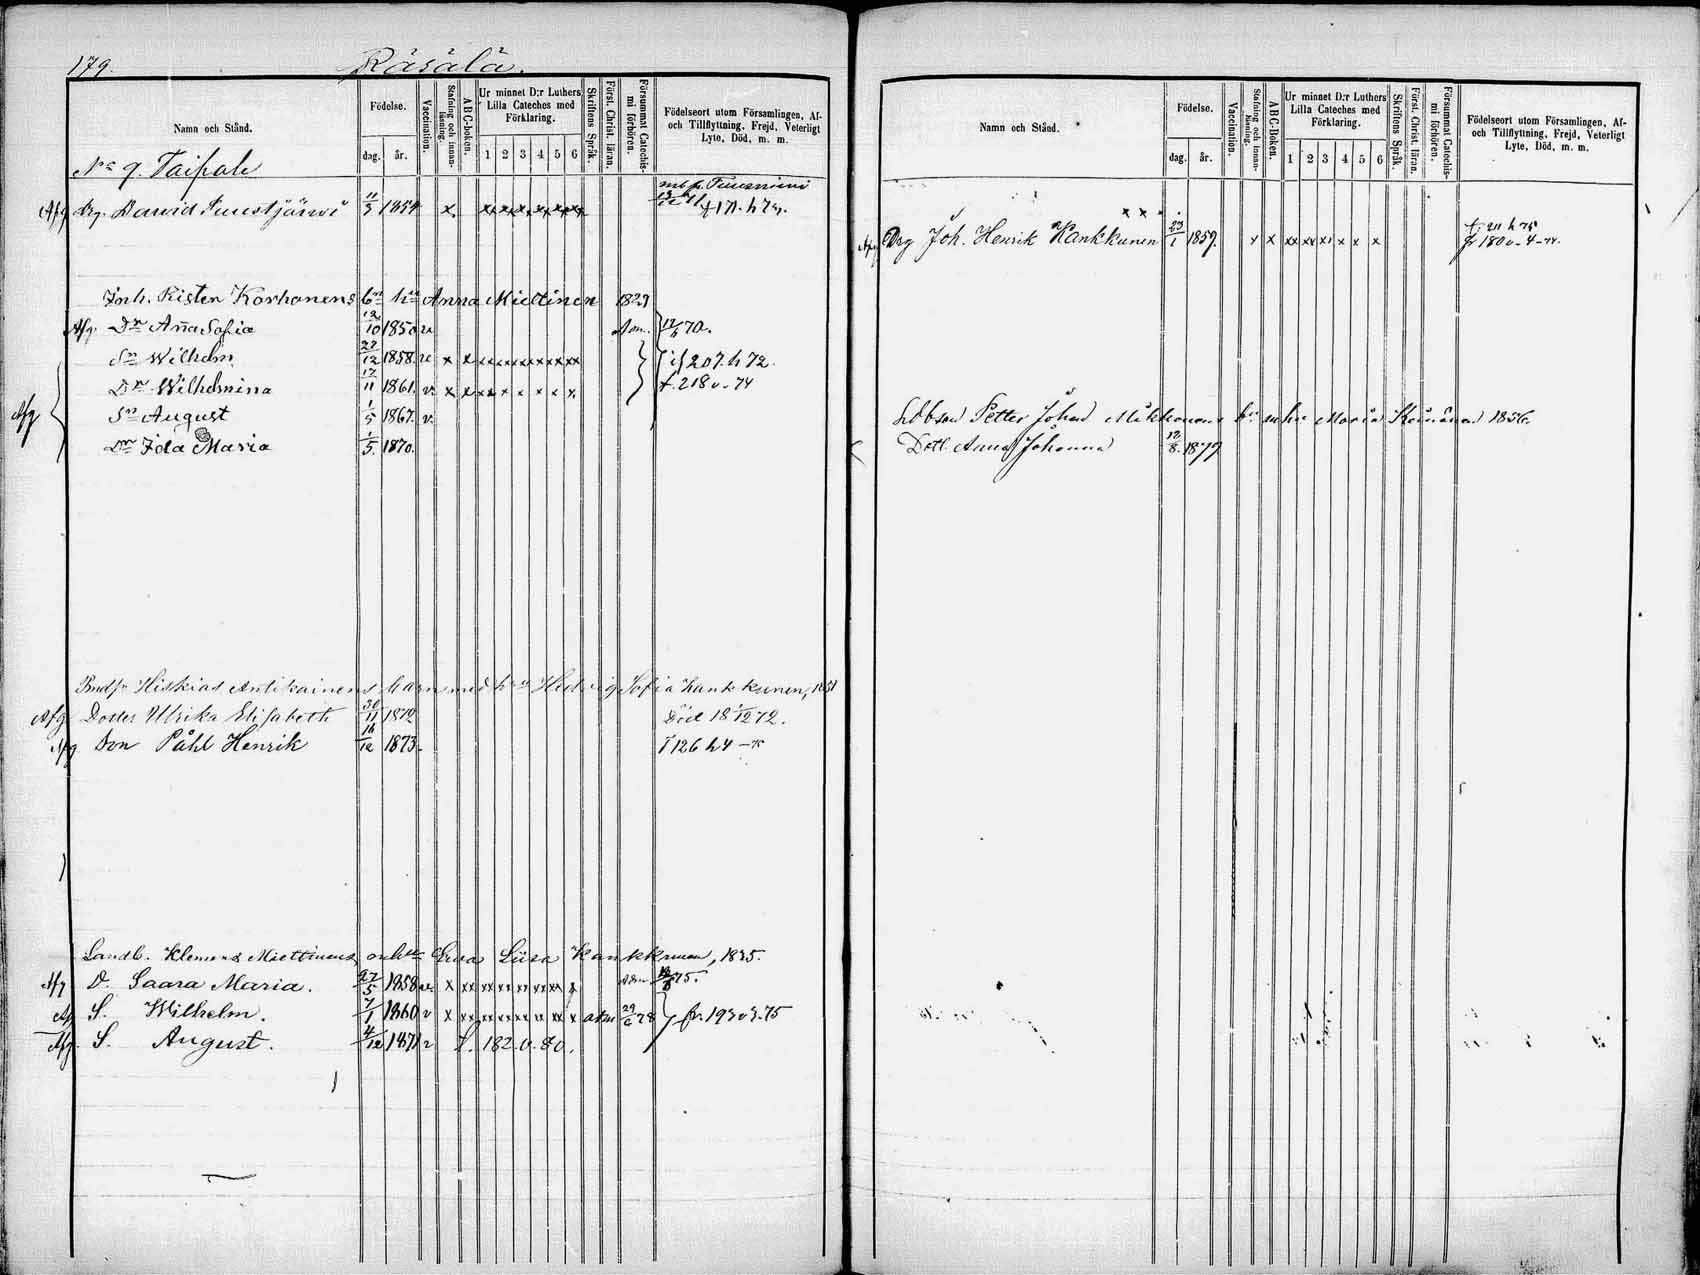 179.
Räsälä.
Namn och Stånd.
Födelse.
dag. år.
Vaccination.
Stafning och innan-läsning.
ABC-boken.
Ur minnet D:r Luthers Lilla Cateches med Förklaring.
1 2 3 4 5 6
Skriftens Språk.
Först. Christ. läran.
Försummat Catechis-mi förhören.
Födelseort utom Församlingen, Af- och Tillflyttning, Frejd, Veterligt Lyte, Död, m. m.
No 9. Taipale
Afg Drg. Dawid Tuuestjärwi 11/3 1854 x
Inh. Risten Korhonens bn hu Anna Miettinen 1829
Afg. Dr Anna Sofia 12/10 1850 v Adm. 70.
Sn Wilhelm 27/12 1858 v x x xx xx xx xx xx 207. h 72.
Dr Wilhelmina 17/11 1861. v. x x 218 v - 74
Afg
Sn August 1/5 1867. v.
Dr Ida Maria 1/5. 1870.
Hiskias Antikainens barn med hu Hedvig Sofia Kankkunen, 1851
Afg Dotter Ulrika Elisabeth 30/11 1872 Död 18 1/12 72.
Afg Son Påhl Henrik 16/12 1873. 126 h 4 - 75
Landb. Klemens Miettinens Ewa Liisa Kankkunen, 1835.
Afg D. Saara Maria. 27/5 1858 Adm 75.
Afg S. Wilhelm. 7/1 1860 v x xx 29/6 78 193 v 3. 75
Afg S. August. 4/12 1871 v 182. v. 80.
Namn och Stånd.
Födelse.
dag. år.
Vaccination.
Stafning och innan-läsning.
ABC-Boken.
Ur minnet D:r Luthers Lilla Cateches med Förklaring.
1 2 3 4 5 6
Skriftens Språk.
Först. Christ. läran.
Försummat Catechis-mi förhören.
Födelseort utom Församlingen, Af- och Tillflyttning, Frejd, Veterligt Lyte, Död, m. m.
Afg Drg Joh. Henrik Kankkunen 23/1 1859. x x xx xx xx x x x 211 h 75
180 v - 4 - 74.
Petter Johan Mikkonens Maria 1856.
Dott. Anna Johanna 12/8. 1877